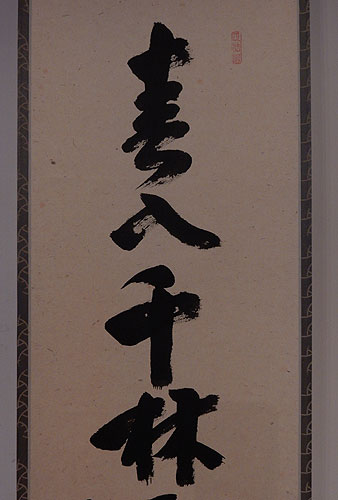 春入千林